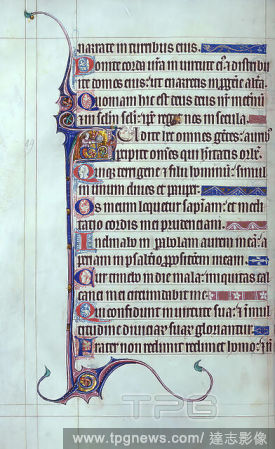 narrate in turribus eius.
Ponite corda vestra in virtute ei9: distribu
ite domos eius: ut enarretis in progenie altera.
Quoniam hic est deus deus nr in eternu
in sclm scli: ipe reget nos in secula.
hec omnes gentes: auri
percipite omnes qui habitatis orbe.
Quiq terrigene et filii hominu: simul
in unum dives et pauper.
Os meum loquetur sapiam: et medi
tatio cordis mei prudenciam.
Inclinabo in parabolam aurem mea: a
periam in psalterio propositionem meam.
Cur timebo in die mala: iniquitas cal
canei mei circumdabit me.
Qui confidunt in virtute sua: in mul
titudine diviciarum suarum gloriantur.
Frater non redimit redimet homo: non
TPG
www.tpgnews.com/ 達志影像